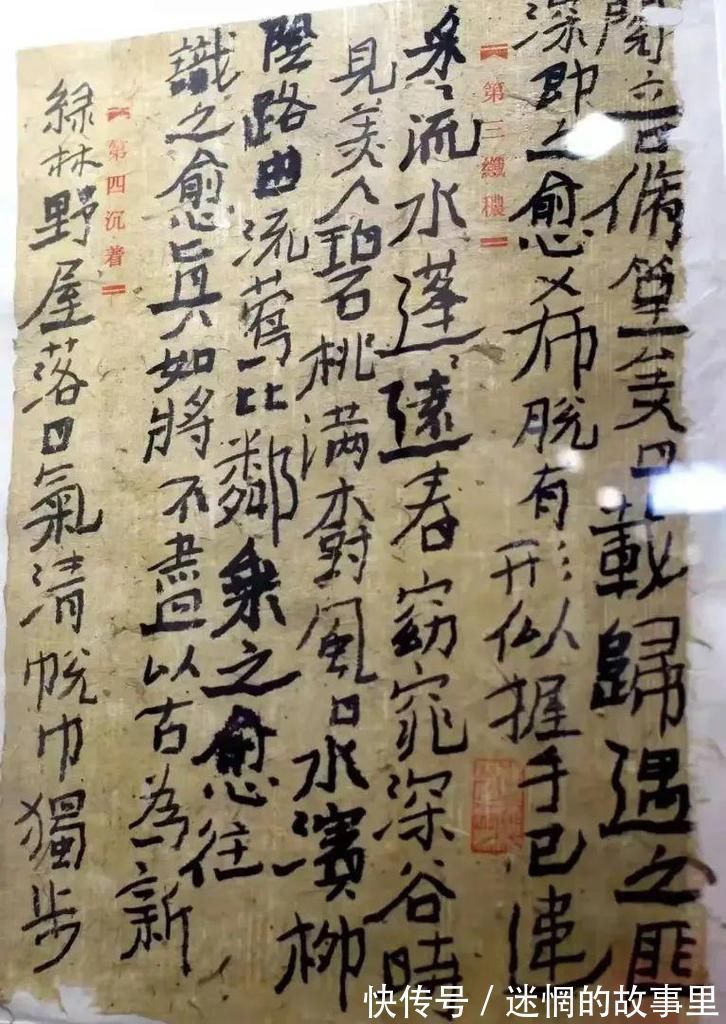 閲音脩篁美曰載歸遇之匪
深即之愈希脱有形似握手已違
第三纖穠
采〻流水蓬〻遠春窈窕深谷時
見美人碧桃满樹風日水濱柳
陰路曲流鶯比鄰乘之愈往
識之愈真如將不盡以古為新
第四沉着
緑林野屋落日氣清脱巾獨步
快传号 / 迷惘的故事里